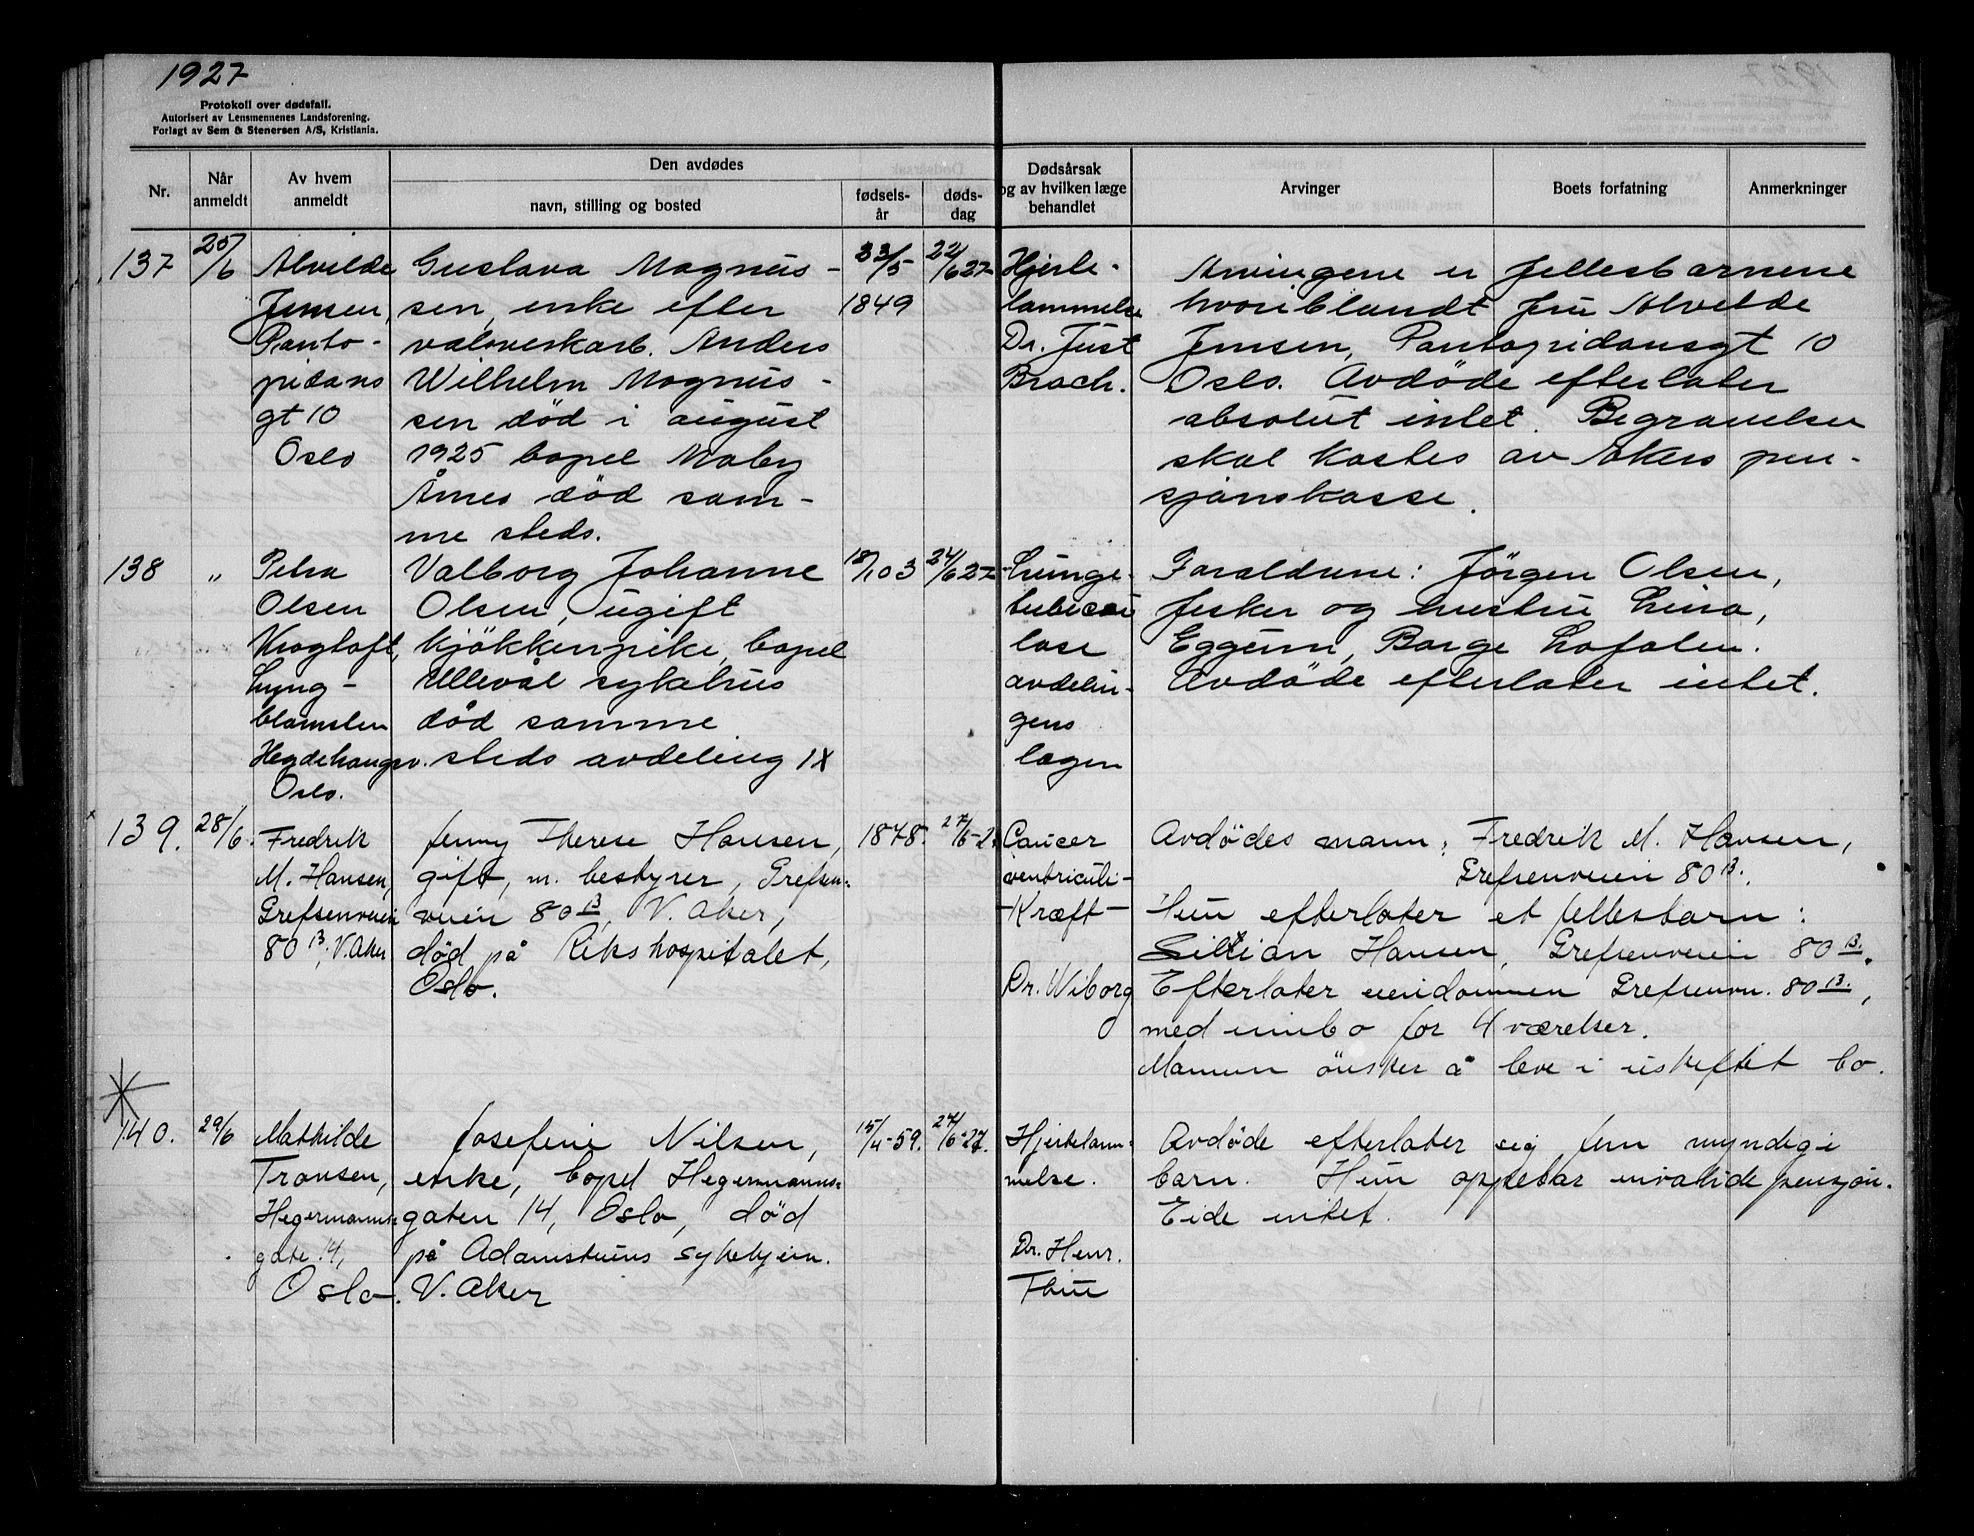 1927
Protokoll over dødsfall.
Autorisert av Lensmennenes Landsforening.
Forlagt av Sem & Stenersen A/S, Kristiania.
Nr.
Når anmeldt
Av hvem anmeldt
Den avdødes
navn, stilling og bosted
fødselsår
dødsdag
Dødsårsak og av hvilken læge behandlet
Arvinger
Boets forfatning
Anmerkninger
137
25/6
Alvilde
Jensen,
Panto-
pidans
gt 10
Oslo
Gustava Magnus-
sen, enke efter
valsverkarb. Anders
Wilhelm Magnus-
sen död i august
1925 bopel
Årnes död sam-
me steds.
/5
1849
22/6 27
Hjerte-
lammelse
Dr. Just
Broch.
Arvingene er fellesbarnene
hvoriblandt fru Alvilde
Jensen, Pantopidansgt 10
Oslo. Avdöde efterlater
absolut intet. Begravelsen
skal kostes av Akers pen-
sjonskasse.
138
"
Petra
Olsen
Krogtoft,
Lyng-
blomsten
Hegdehaugsv.
Oslo.
Valborg Johanne
Olsen, ugift
kjökkenpike, bopel
Ullevål sykehus
död samme
steds avdeling IX
18/1 03
24/6 27
Lunge-
tuberku
lose
avdelin-
gens
lægen
Foreldrene: Jörgen Olsen,
fisker og hustru Lina,
Eggum, Borge Lofoten.
Avdöde efterlater intet.
139.
28/6.
Fredrik
M. Hansen,
Grefsenveien
80 B, V. Aker
Jenny Therese Hansen,
gift, m. bestyrer, Grefsen-
veien 80 B, V. Aker,
död på Rikshospitalet,
Oslo.
1848.
27/6-2
Cancer
ventriculi-
-Kræft-
Dr. Wiborg
Avdödes mann: Fredrik M. Hansen,
Grefsenveien 80 B.
Hun efterlater et fellesbarn:
Lillian Hansen, Grefsenveien 80 B.
Efterlater eiendommen Grefsenvn. 80 B.,
med innbo for 4 værelser.
Mannen önsker å leve i uskiftet bo.
140.
29/6
Mathilde
Transen,
Hegermanns
gate 14,
Oslo.
Josefine Nilsen,
enke, bopel Hegermanns-
gaten 14, Oslo, död
på Adamstuens sykehjem.
V. Aker
15/4-59.
27/6-27.
Hjertelam-
melse.
Dr. Henr.
Thue
Avdöde efterlater sig fem myndige
barn. Hun oppebar invalidepensjon.
Eide intet.